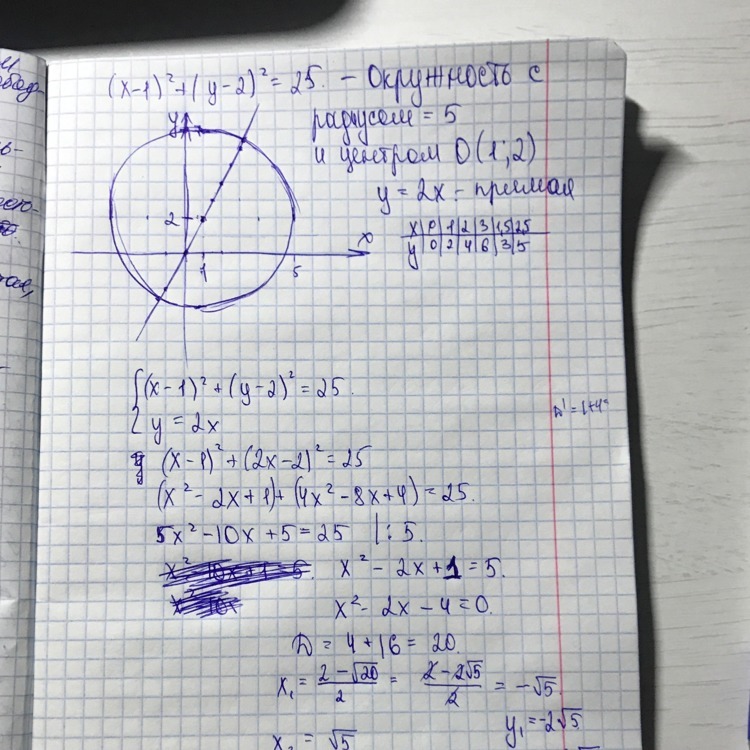 (x-1)²+(y-2)²=25. - Окружность с
радиусом = 5
и центром O(1;2)
y = 2x - прямая
x 0 1 2 3 1,5 2,5
y 0 2 4 6 3 5
y
2
x
1
5
{(x-1)²+(y-2)²=25.
y = 2x
(x-1)²+(2x-2)²=25
(x²-2x+1)+(4x²-8x+4)=25.
5x²-10x+5=25 |:5.
x²-2x+1=5.
x²-2x-4=0.
D = 4+16 = 20.
x₁ = (2-√20)/2 = (2-2√5)/2 = -√5.
y₁=-2√5
x₂ = √5